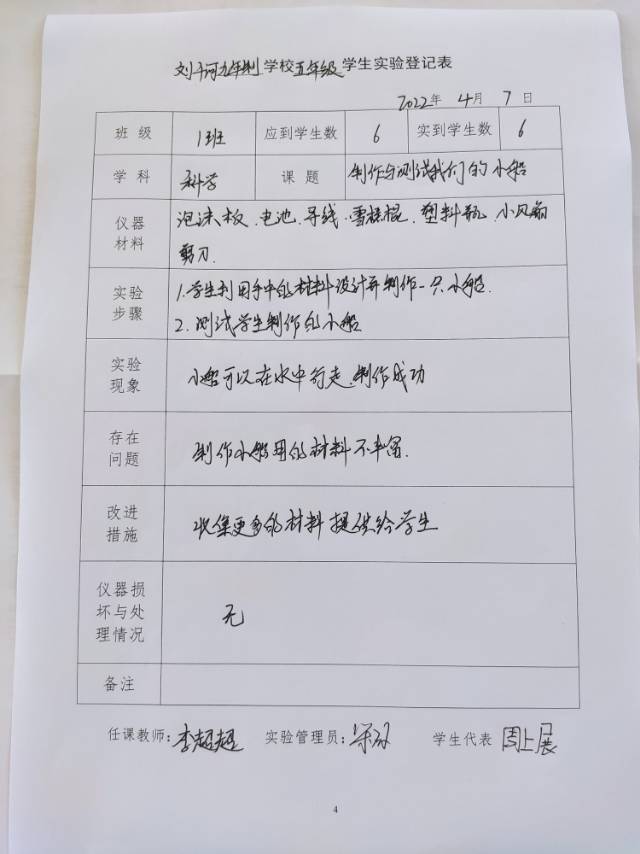 刘河九年制学校五年级学生实验登记表
2022年 4月 7日
班 级 1班 应到学生数 6 实到学生数 6
学 科 科学 课 题 制作与测试我们的小船
仪器材料 泡沫板、电池、导线、雪糕棍、塑料瓶、小风扇
剪刀.
实验步骤 1.学生利用手中的材料设计并制作一只小船.
2.测试学生制作的小船
实验现象 小船可以在水中行走.制作成功
存在问题 制作小船用的材料不丰富.
改进措施 收集更多的材料提供给学生
仪器损坏与处理情况 无
备注
任课教师:李超超 实验管理员: 学生代表 周上展
4